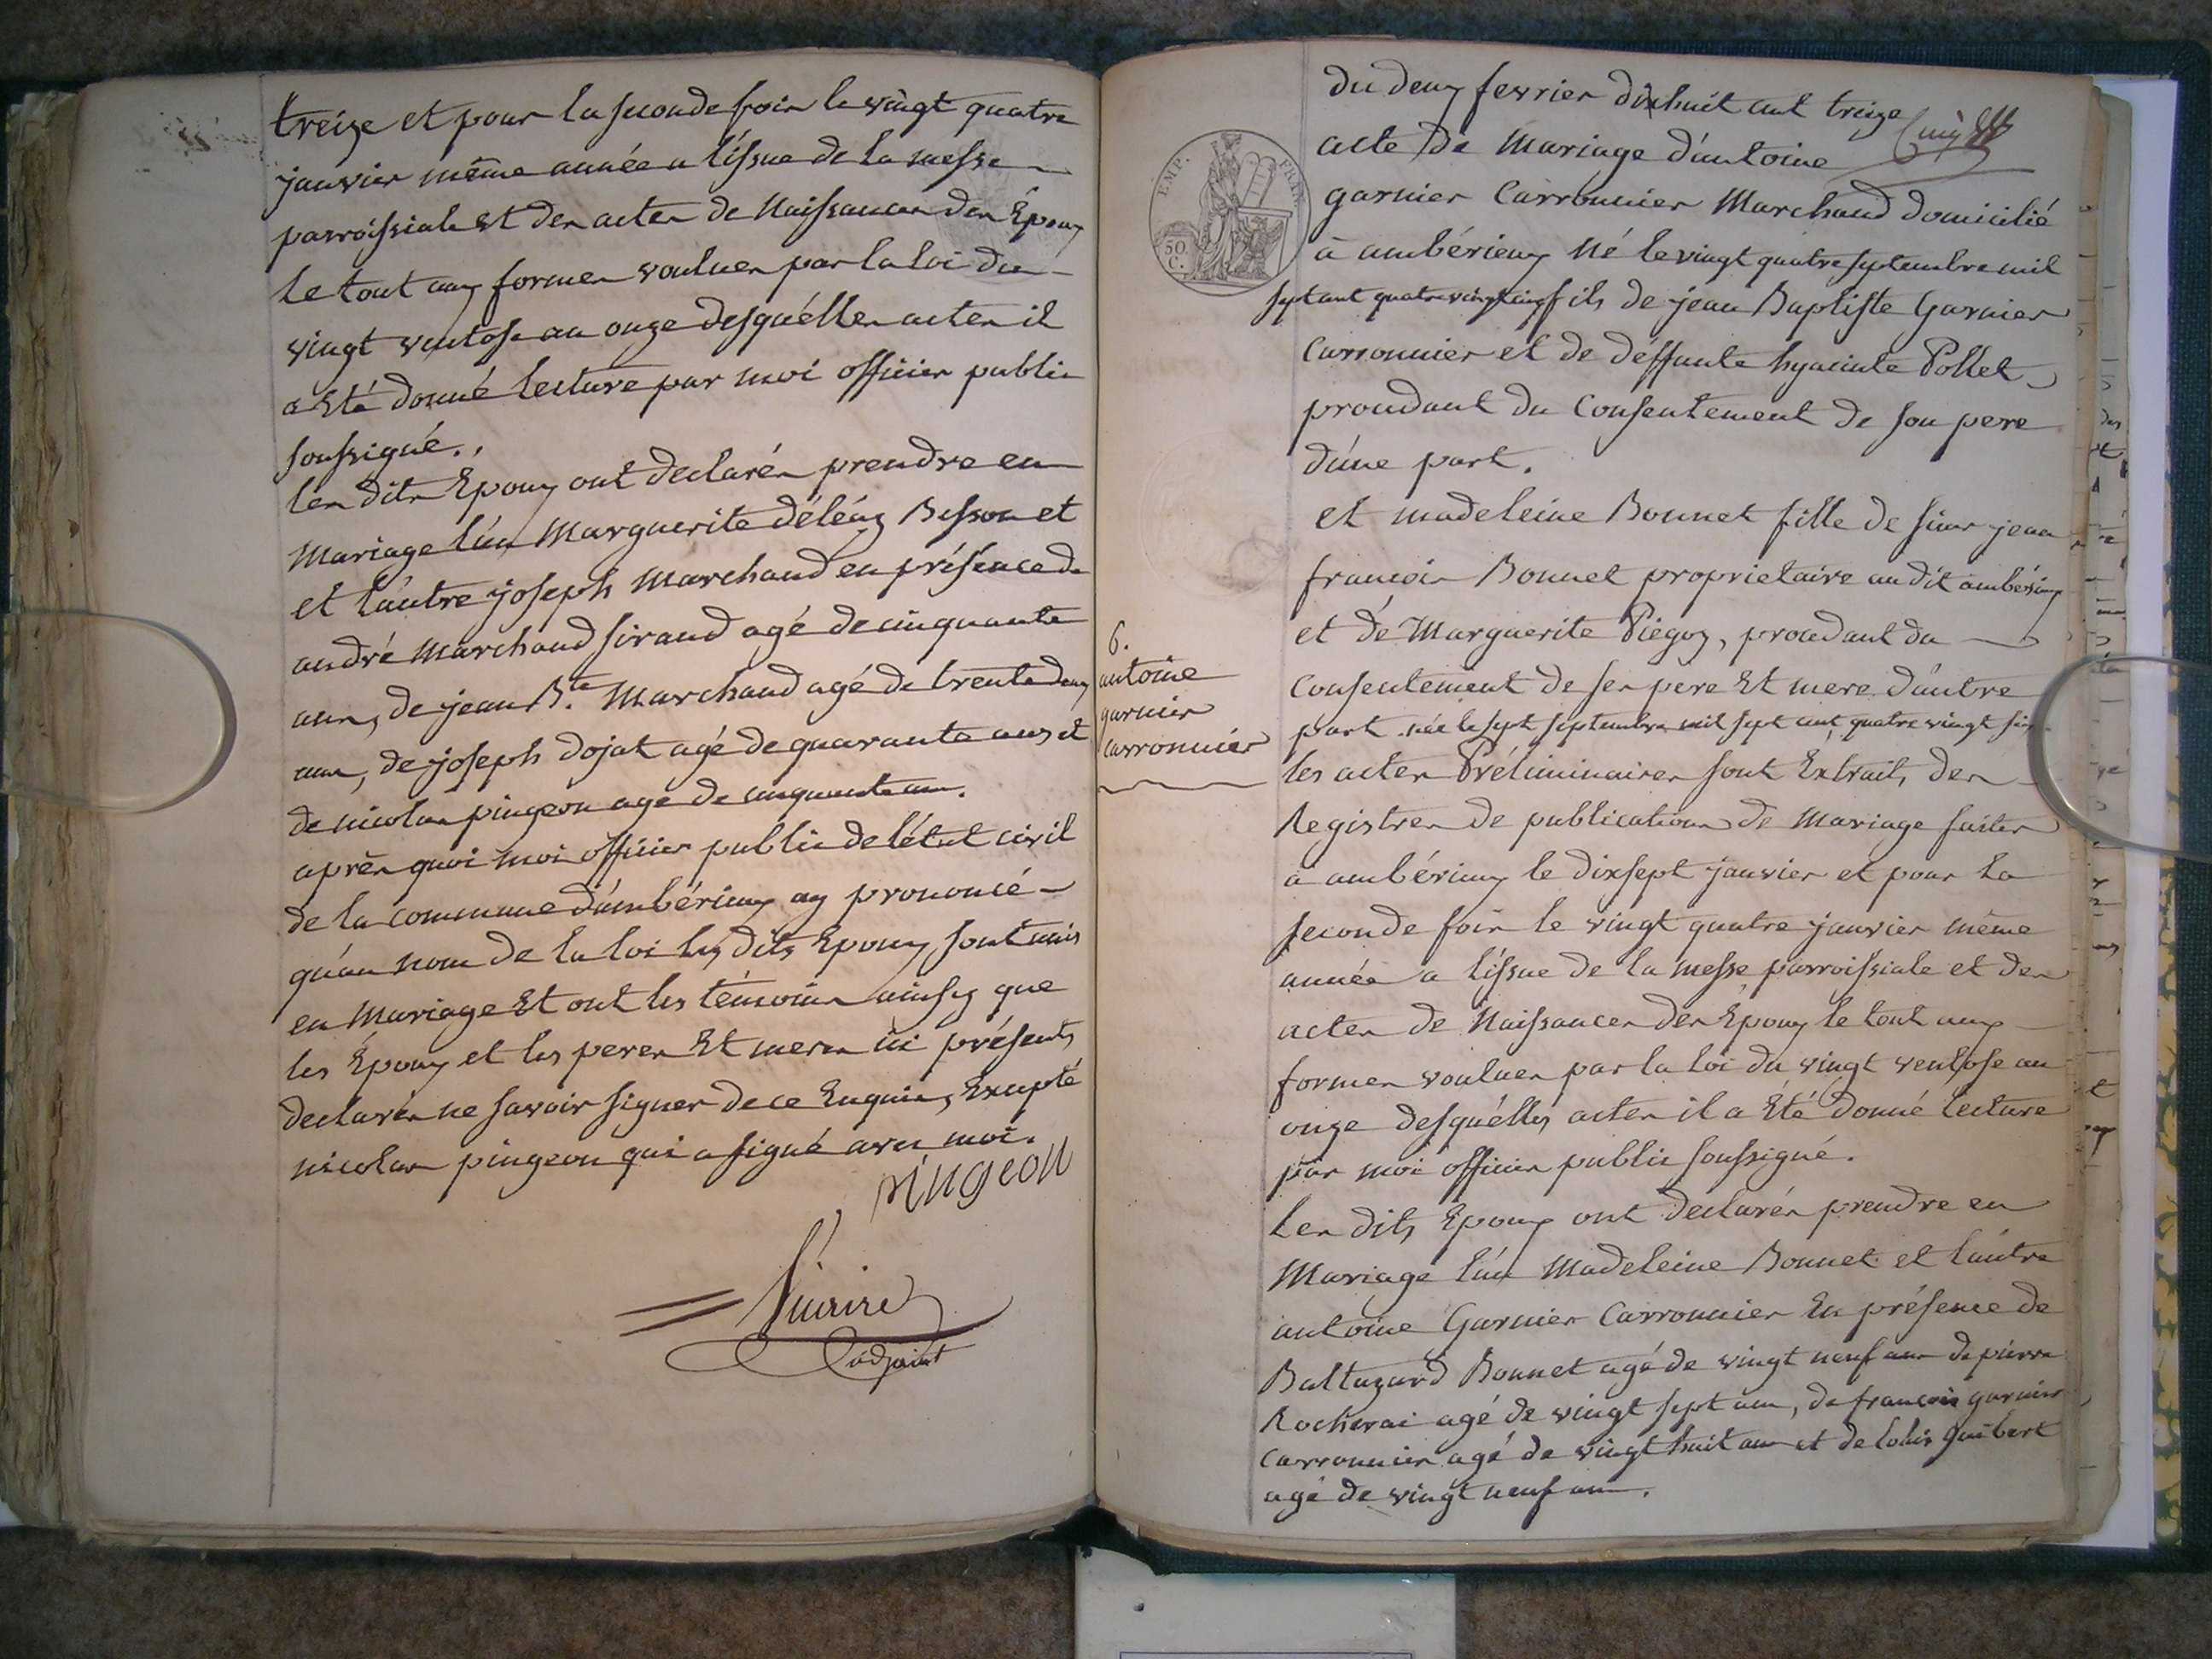 treize et pour la seconde fois le vingt quatre
janvier même année a l'issue de la messe
parroissiale et des actes de Naissances des Epoux
le tout aux formes voulues par la loi du
vingt ventose an onze desquélles actes il
a Eté donné lecture par moi officier public
soussigné.,
les dits Epoux ont declarés prendre en
Mariage l'un Marguerite déléaz Besson et
et l'autre joseph Marchand en présence de
andré Marchand sirand agé de cinquante
ans, de jean B.te Marchand agé de trente deux
ans, de joseph dojat agé de quarante ans et
de nicolas pingeon agé de cinquante ans.
après quoi moi officier public de l'état civil
de la commune d'ambérieux ay prononcé
qu'au nom de la loi les dits Epoux sont unis
en Mariage Et ont les témoins ainsy que
les Epoux et les peres Et meres ici présents
declarés ne savoir signer de ce Enquis, Excepté
nicolas pingeon qui a signé avec moi.
pingeon
adjoint
du deux fevrier dixhuit cent treize
EMP. FRAN.
50 C.
acte de Mariage d'antoine
garnier Carronnier Marchand domicilié
à ambérieux Né le vingt quatre septembre mil
sept cent quatre vingt cinq fils de jean Baptiste Garnier
Carronnier et de deffunte hyacinte Pollet
procedant du Consentement de son pere
d'une part.
et madeleine Bonnet fille de sieur jean
francois Bonnet proprietaire au dit ambérieux
et de Marguerite Piegoz, procedant du
Consentement de ses pere Et mere d'autre
part née le sept septembre mil sept cent quatre vingt six
6.
antoine
garnier
carronnier
les actes Préliminaires sont Extraits des
Registres de publications de Mariage faites
a ambérieux le dixsept janvier et pour la
seconde fois le vingt quatre janvier même
année a l'issue de la messe parroissiale et des
actes de Naissances des Epoux le tout aux
formes voulues par la loi du vingt ventose an
onze desquélles actes il a Eté donné lecture
par moi officier public soussigné.
Les dits Epoux ont declarés prendre en
Mariage l'un Madeleine Bonnet et l'autre
antoine Garnier Carronnier En présence de
Baltazard Bonnet agé de vingt neuf ans de pierre
Rocherai agé de vingt sept ans, de francois garnier
Carronnier agé de vingt huit ans et de louis guibert
agé de vingt neuf ans.